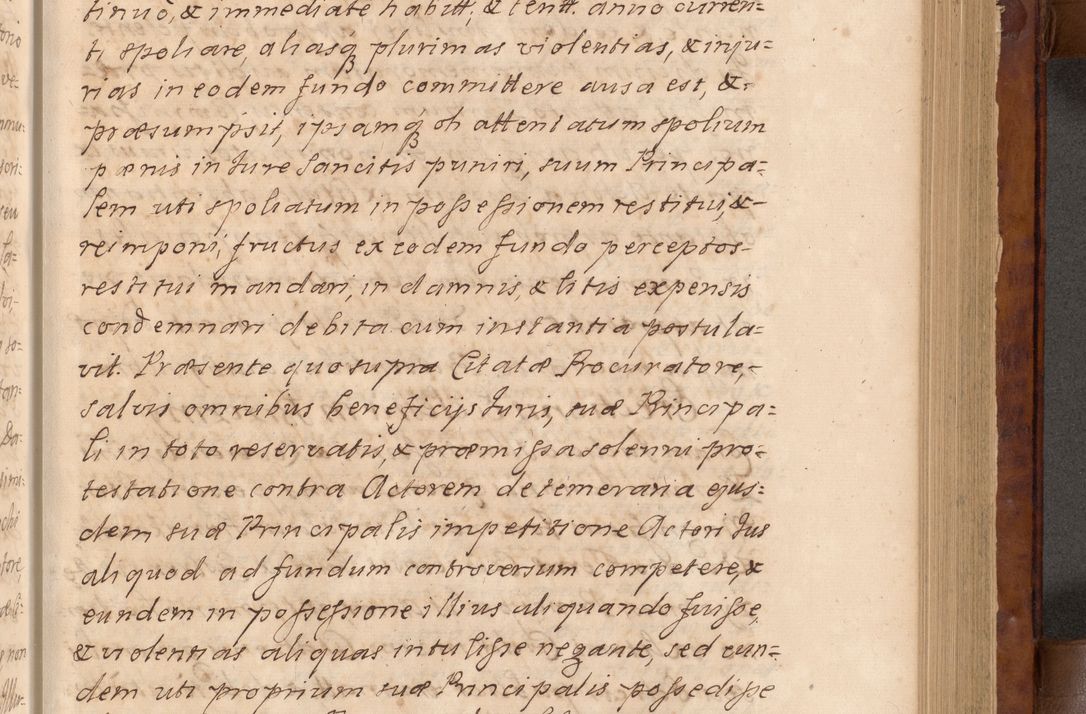 tinuò, & immediatè habitt, & tentt. anno curren=
ti spoliare, aliasq3 plurimas violentias, & inju=
rias in eodem fundo committere ausa est, &
præsumpsit, ipsamq3 ob attentatum spolium
pænis in Jure sancitis puniri, suum Principa=
lem uti spoliatum in possessionem restitui, &
reimponi, fructus ex eodem fundo perceptos
restitui mandari, in damnis, & litis expensis
condemnari debita cum instantia postula=
vit. Præsente quo supra Citatæ Procuratore,
salvis omnibus beneficijs Juris, suæ Principa=
li in toto reservatis, & præmissa solenni pro=
testatione contra Actorem de temeraria ejus=
dem suæ Principalis impetitione Actori Jus
aliquod ad fundum controversum competere, &
eundem in possessione illius aliquando fuisse,
& violentias aliquas intulisse negante, sed eun=
dem uti proprium suæ Principalis possedisse